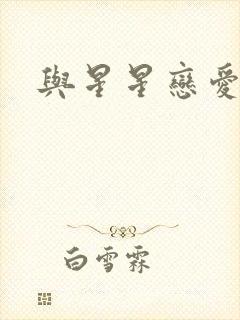 與星星戀愛
白雪霖